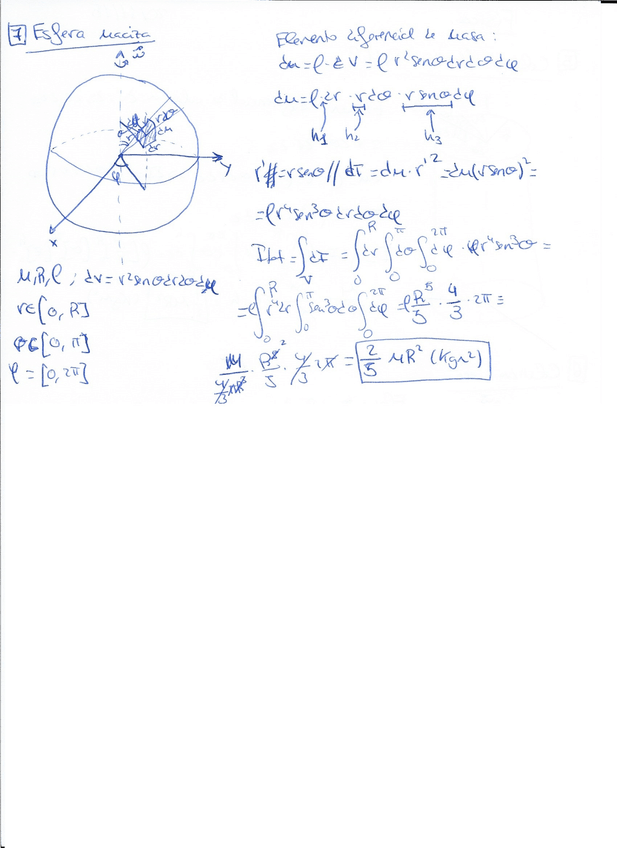 7 Esfera maciza
Elemento diferencial de masa:
dm = ρ·dV = ρ r² senθ dr dθ dφ
dm = ρ·dr · r dθ · r senθ dφ
h₁ h₂ h₃
r' = r senθ // dI = dm · r'² = dm (r senθ)² =
= ρ r⁴ sen³θ dr dθ dφ
I tot = ∫ dI = ∫₀ᴿ dr ∫₀^π dθ ∫₀^2π dφ · ρ r⁴ sen³θ =
V
= ρ ∫₀ᴿ r⁴ dr ∫₀^π sen³θ dθ ∫₀^2π dφ = ρ R⁵/5 · 4/3 · 2π =
M/(4/3 π R³) · R⁵/5 · 4/3 2π = 2/5 MR² (Kg m²)
φ
dm
dr
Y
X
M, R, ρ ; dV = r² senθ dr dθ dφ
r ∈ [0, R]
θ ∈ [0, π]
φ = [0, 2π]